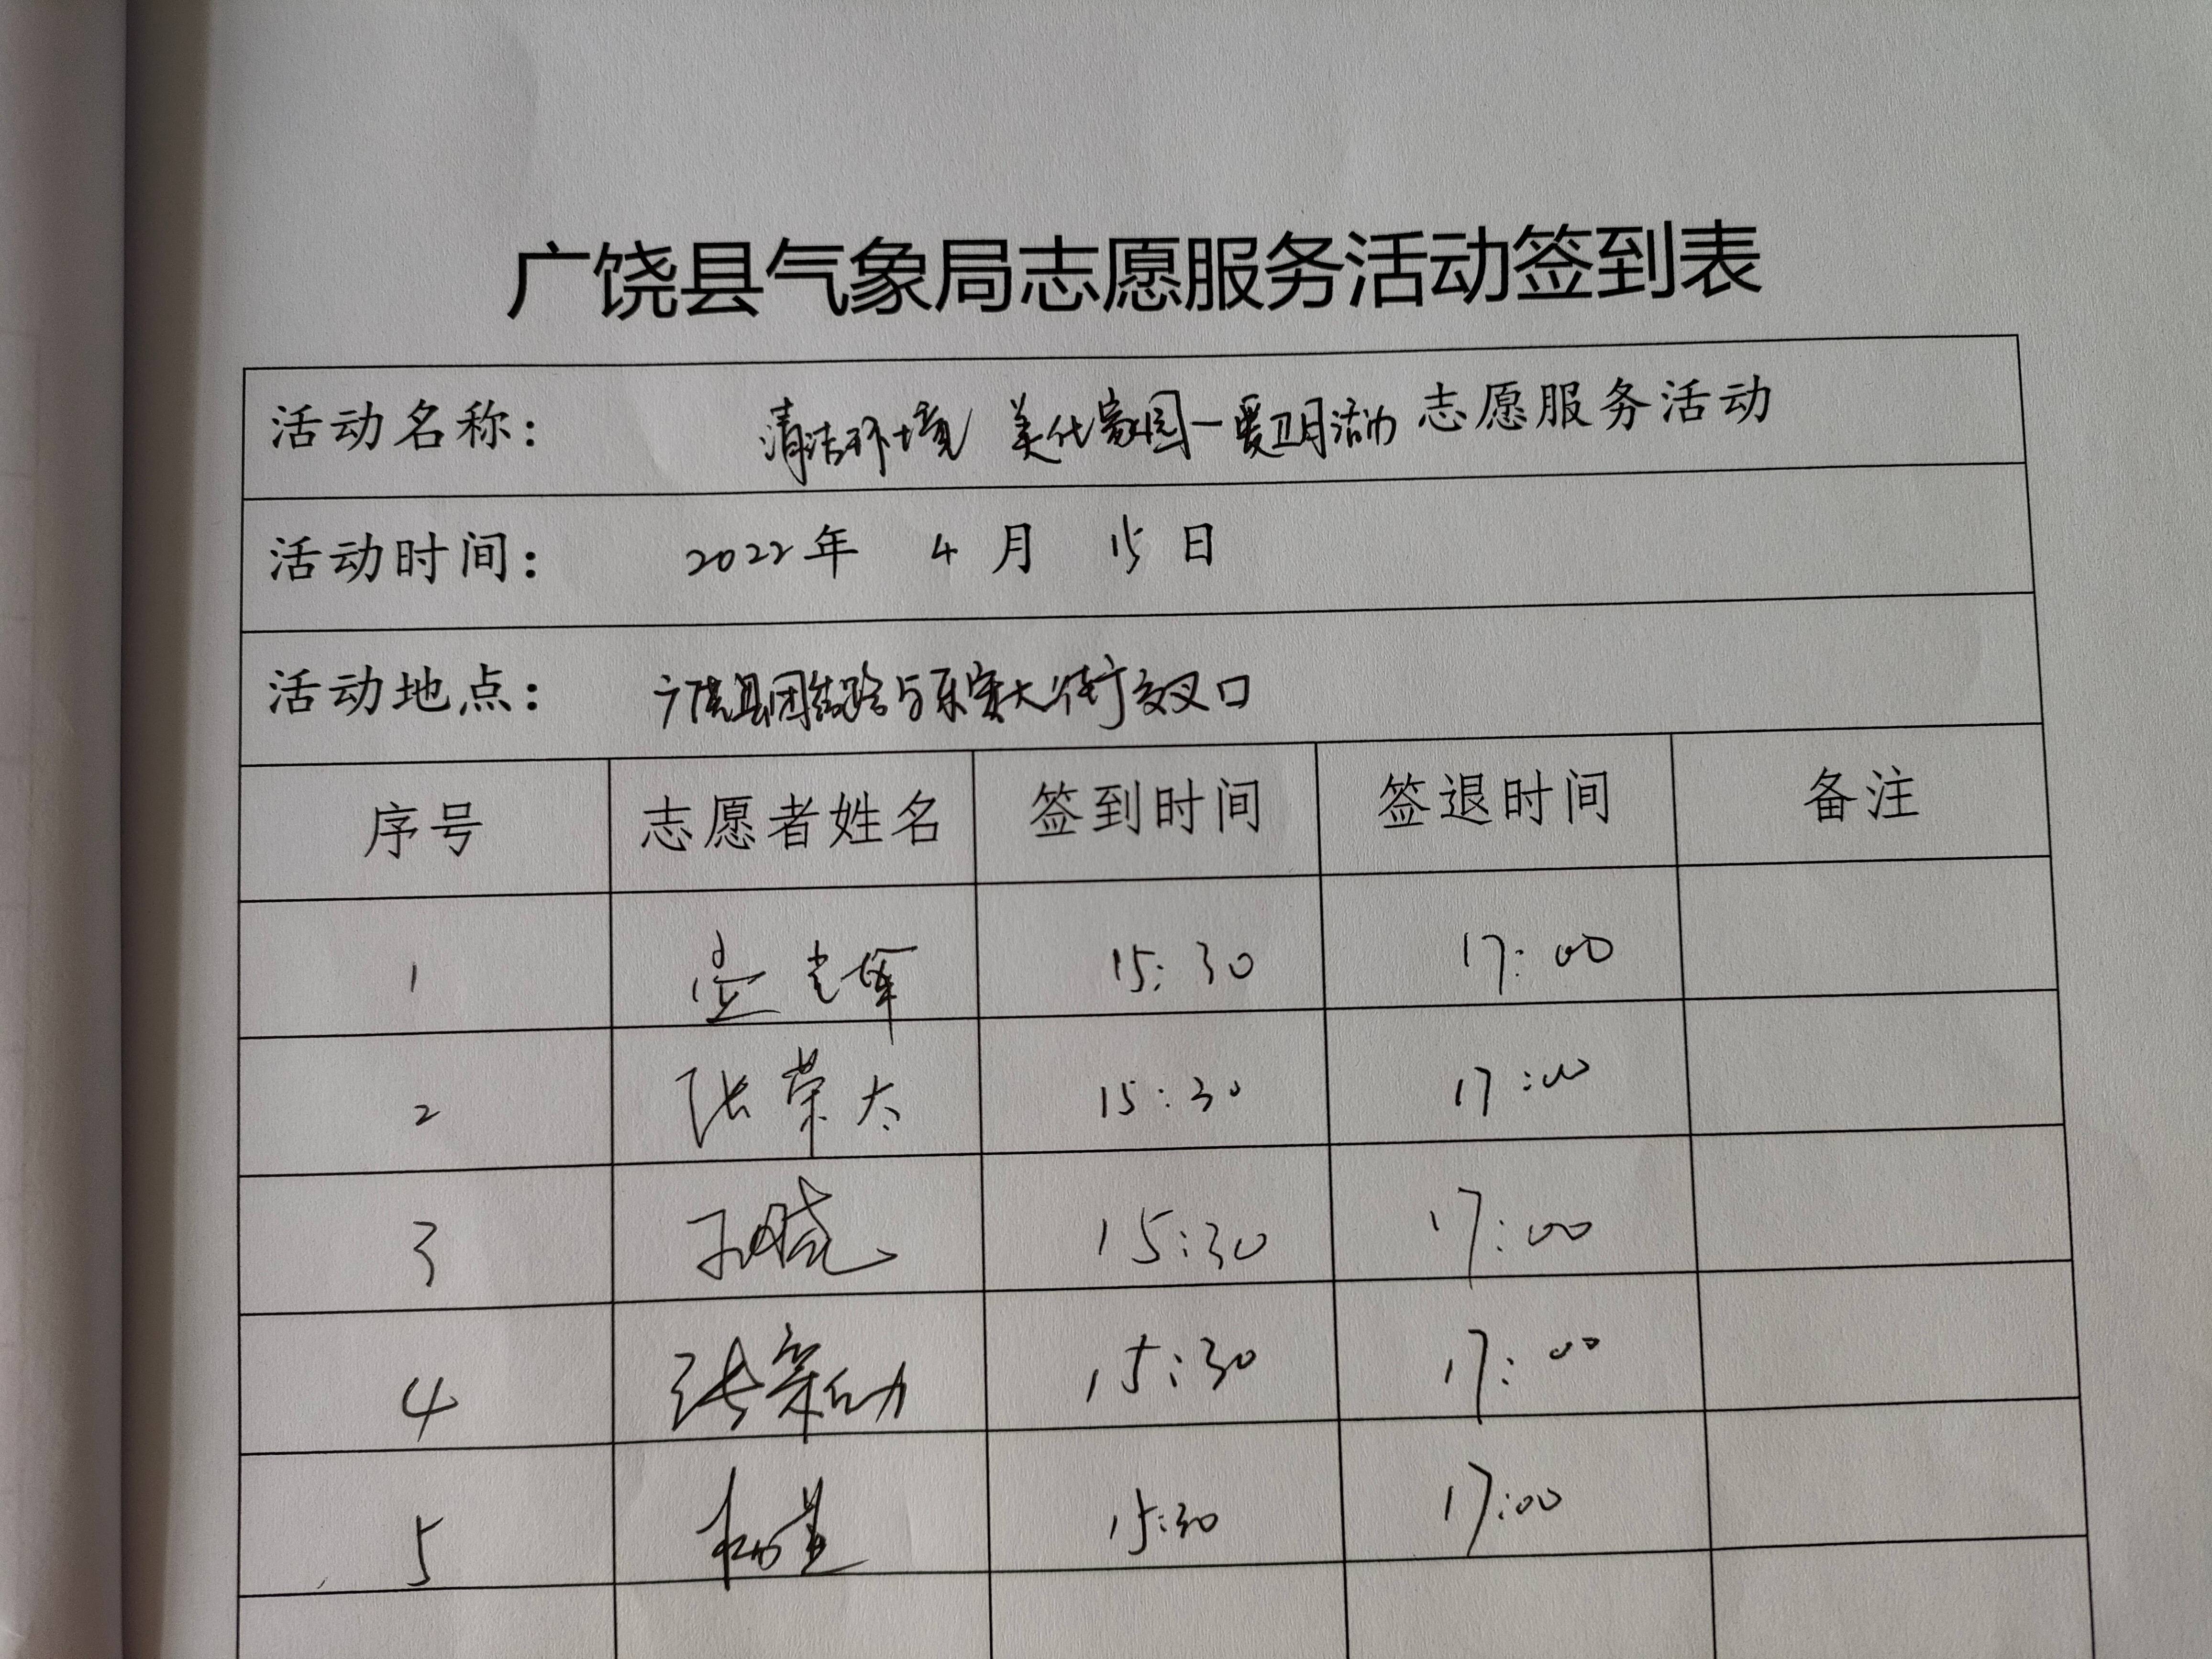 广饶县气象局志愿服务活动签到表
活动名称: 清洁环境 美化家园一爱卫月活动 志愿服务活动
活动时间: 2022年 4 月 15 日
活动地点: 广饶县团结路与乐安大街交叉口
序号 志愿者姓名 签到时间 签退时间 备注
1 15:30 17:00
2 张荣太 15:30 17:00
3 孙晓 15:30 17:00
4 张 15:30 17:00
5 15:30 17:00